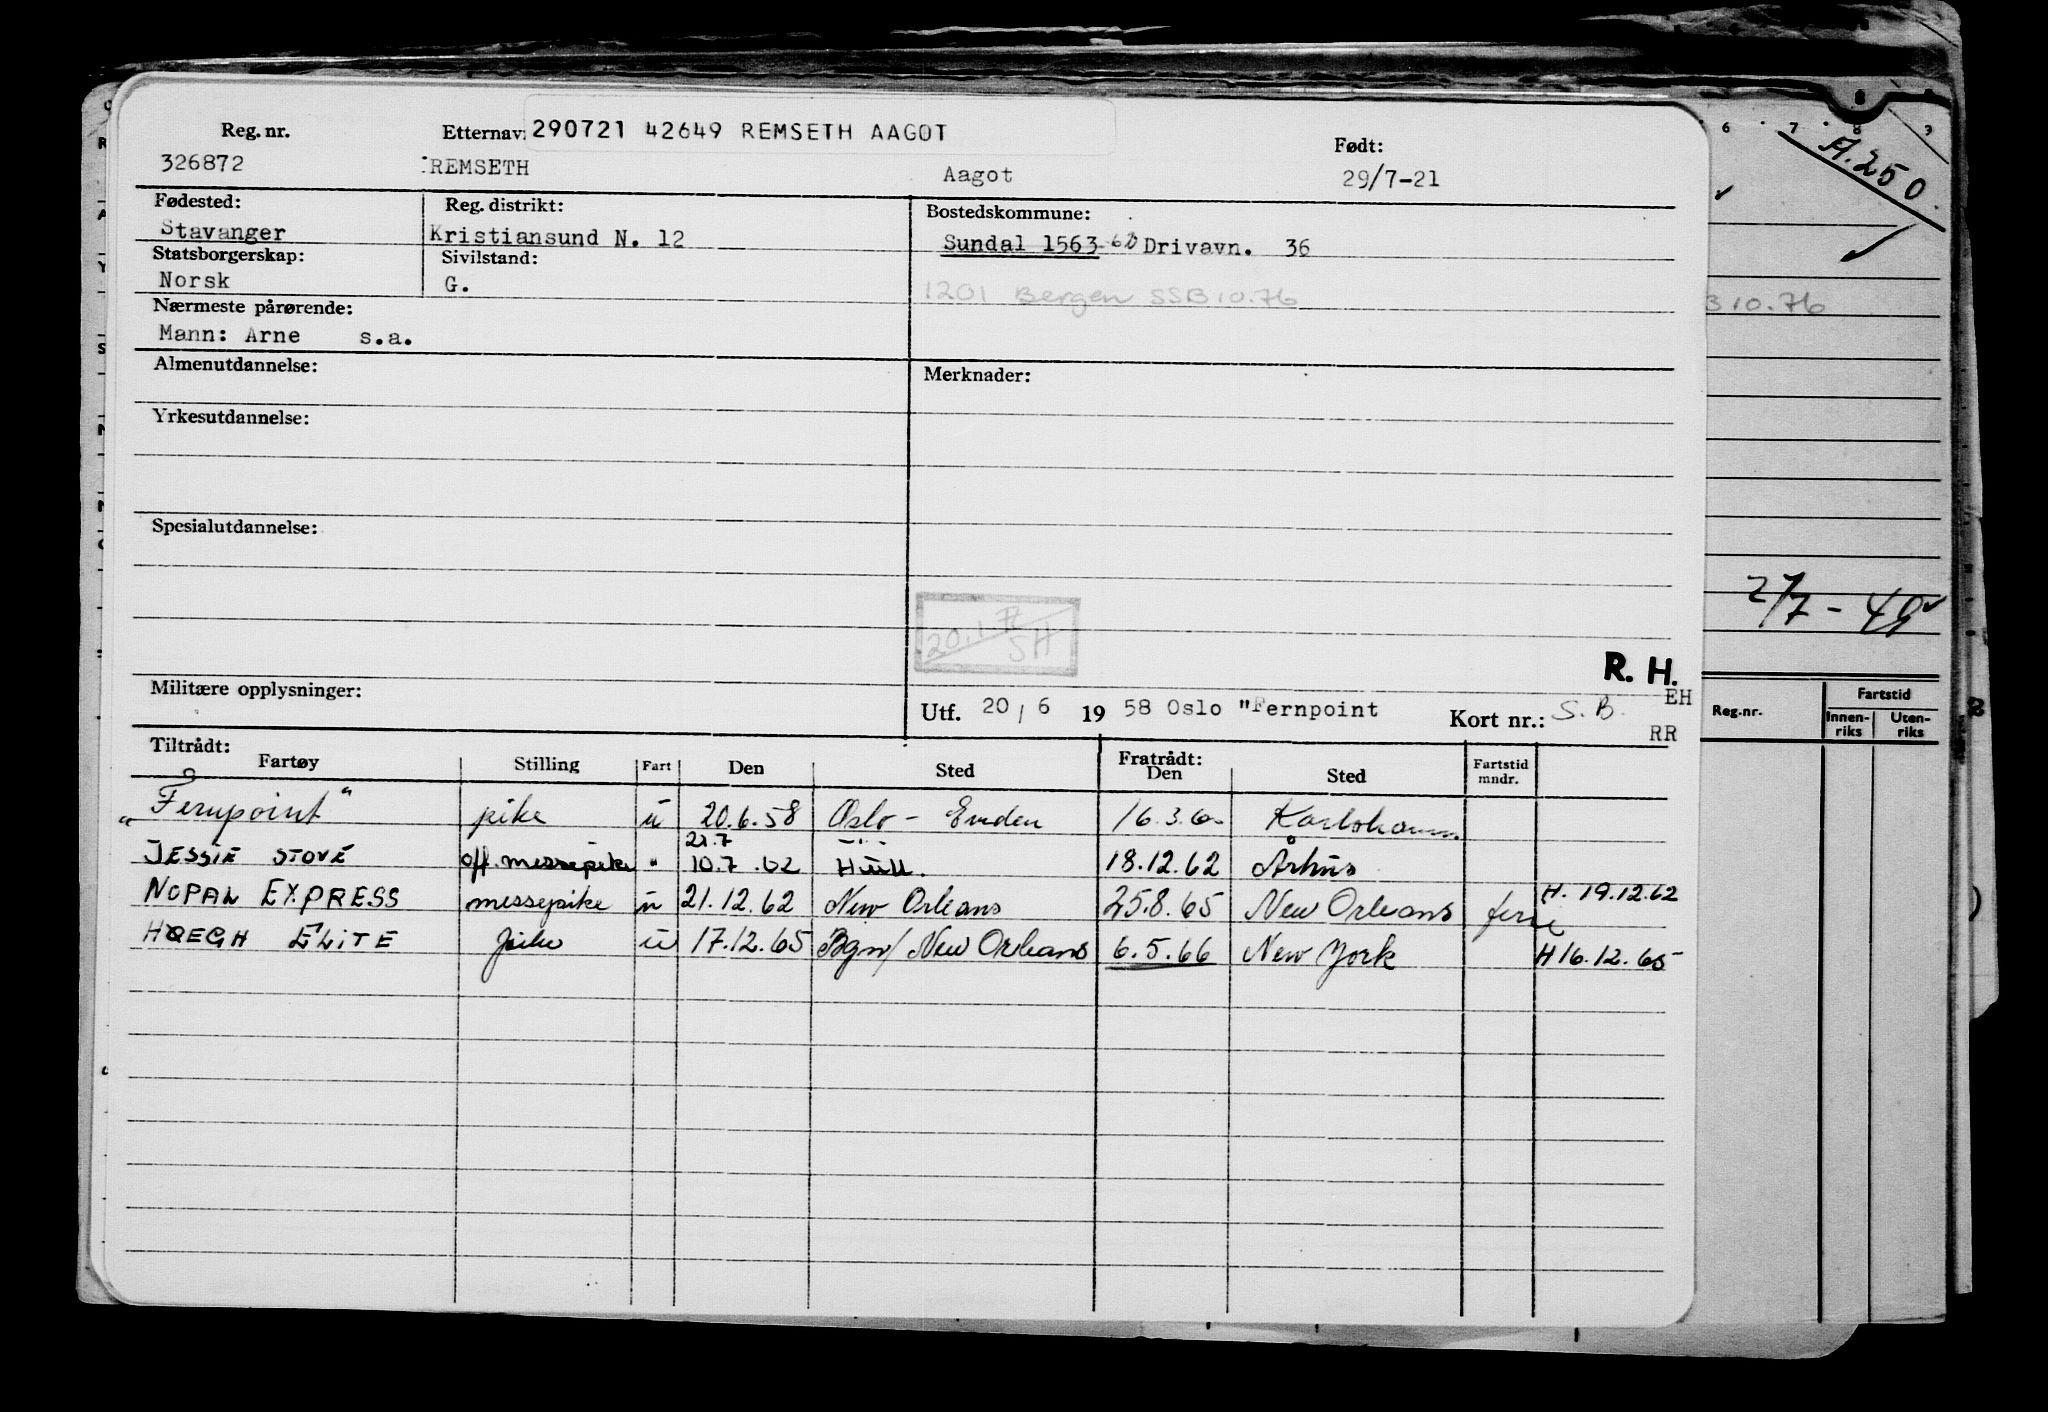 Reg. nr. Etternav: 290721 42649 REMSETH AAGOT Født:
326872 REMSETH Aagot 29/7-21
Fødested: Reg. distrikt: Bostedskommune:
Stavanger Kristiansund N. 12 Sundal 1563 Drivavn. 36
Statsborgerskap: Sivilstand:
Norsk G. 1201 Bergen SSB 10.76
Nærmeste pårørende:
Mann: Arne s.a.
Almenutdannelse: Merknader:
Yrkesutdannelse:
Spesialutdannelse:
SH
R. H.
Militære opplysninger: EH
Utf. 20/6 1958 Oslo "Fernpoint Kort nr.: S. B.
RR
Tiltrådt: Fratrådt:
Fartøy Stilling Fart Den Sted Den Sted Fartstid mndr.
"Fernpoint" pike u 20.6.58 Oslo - Emden 16.3.60 Karlshamn
JESSIE STOVE off. messepike " 10.7.62 Hull. 18.12.62 Århus
NOPAL EXPRESS messepike u 21.12.62 New Orleans 25.8.65 New Orleans ferie H. 19.12.62
HØEGH ELITE pike u 17.12.65 Bgn/New Orleans 6.5.66 New York H 16.12.65
6 7 8 9
A.250
B 10.76
2/7 - 49
Reg.nr. Fartstid
Innen- riks Uten- riks